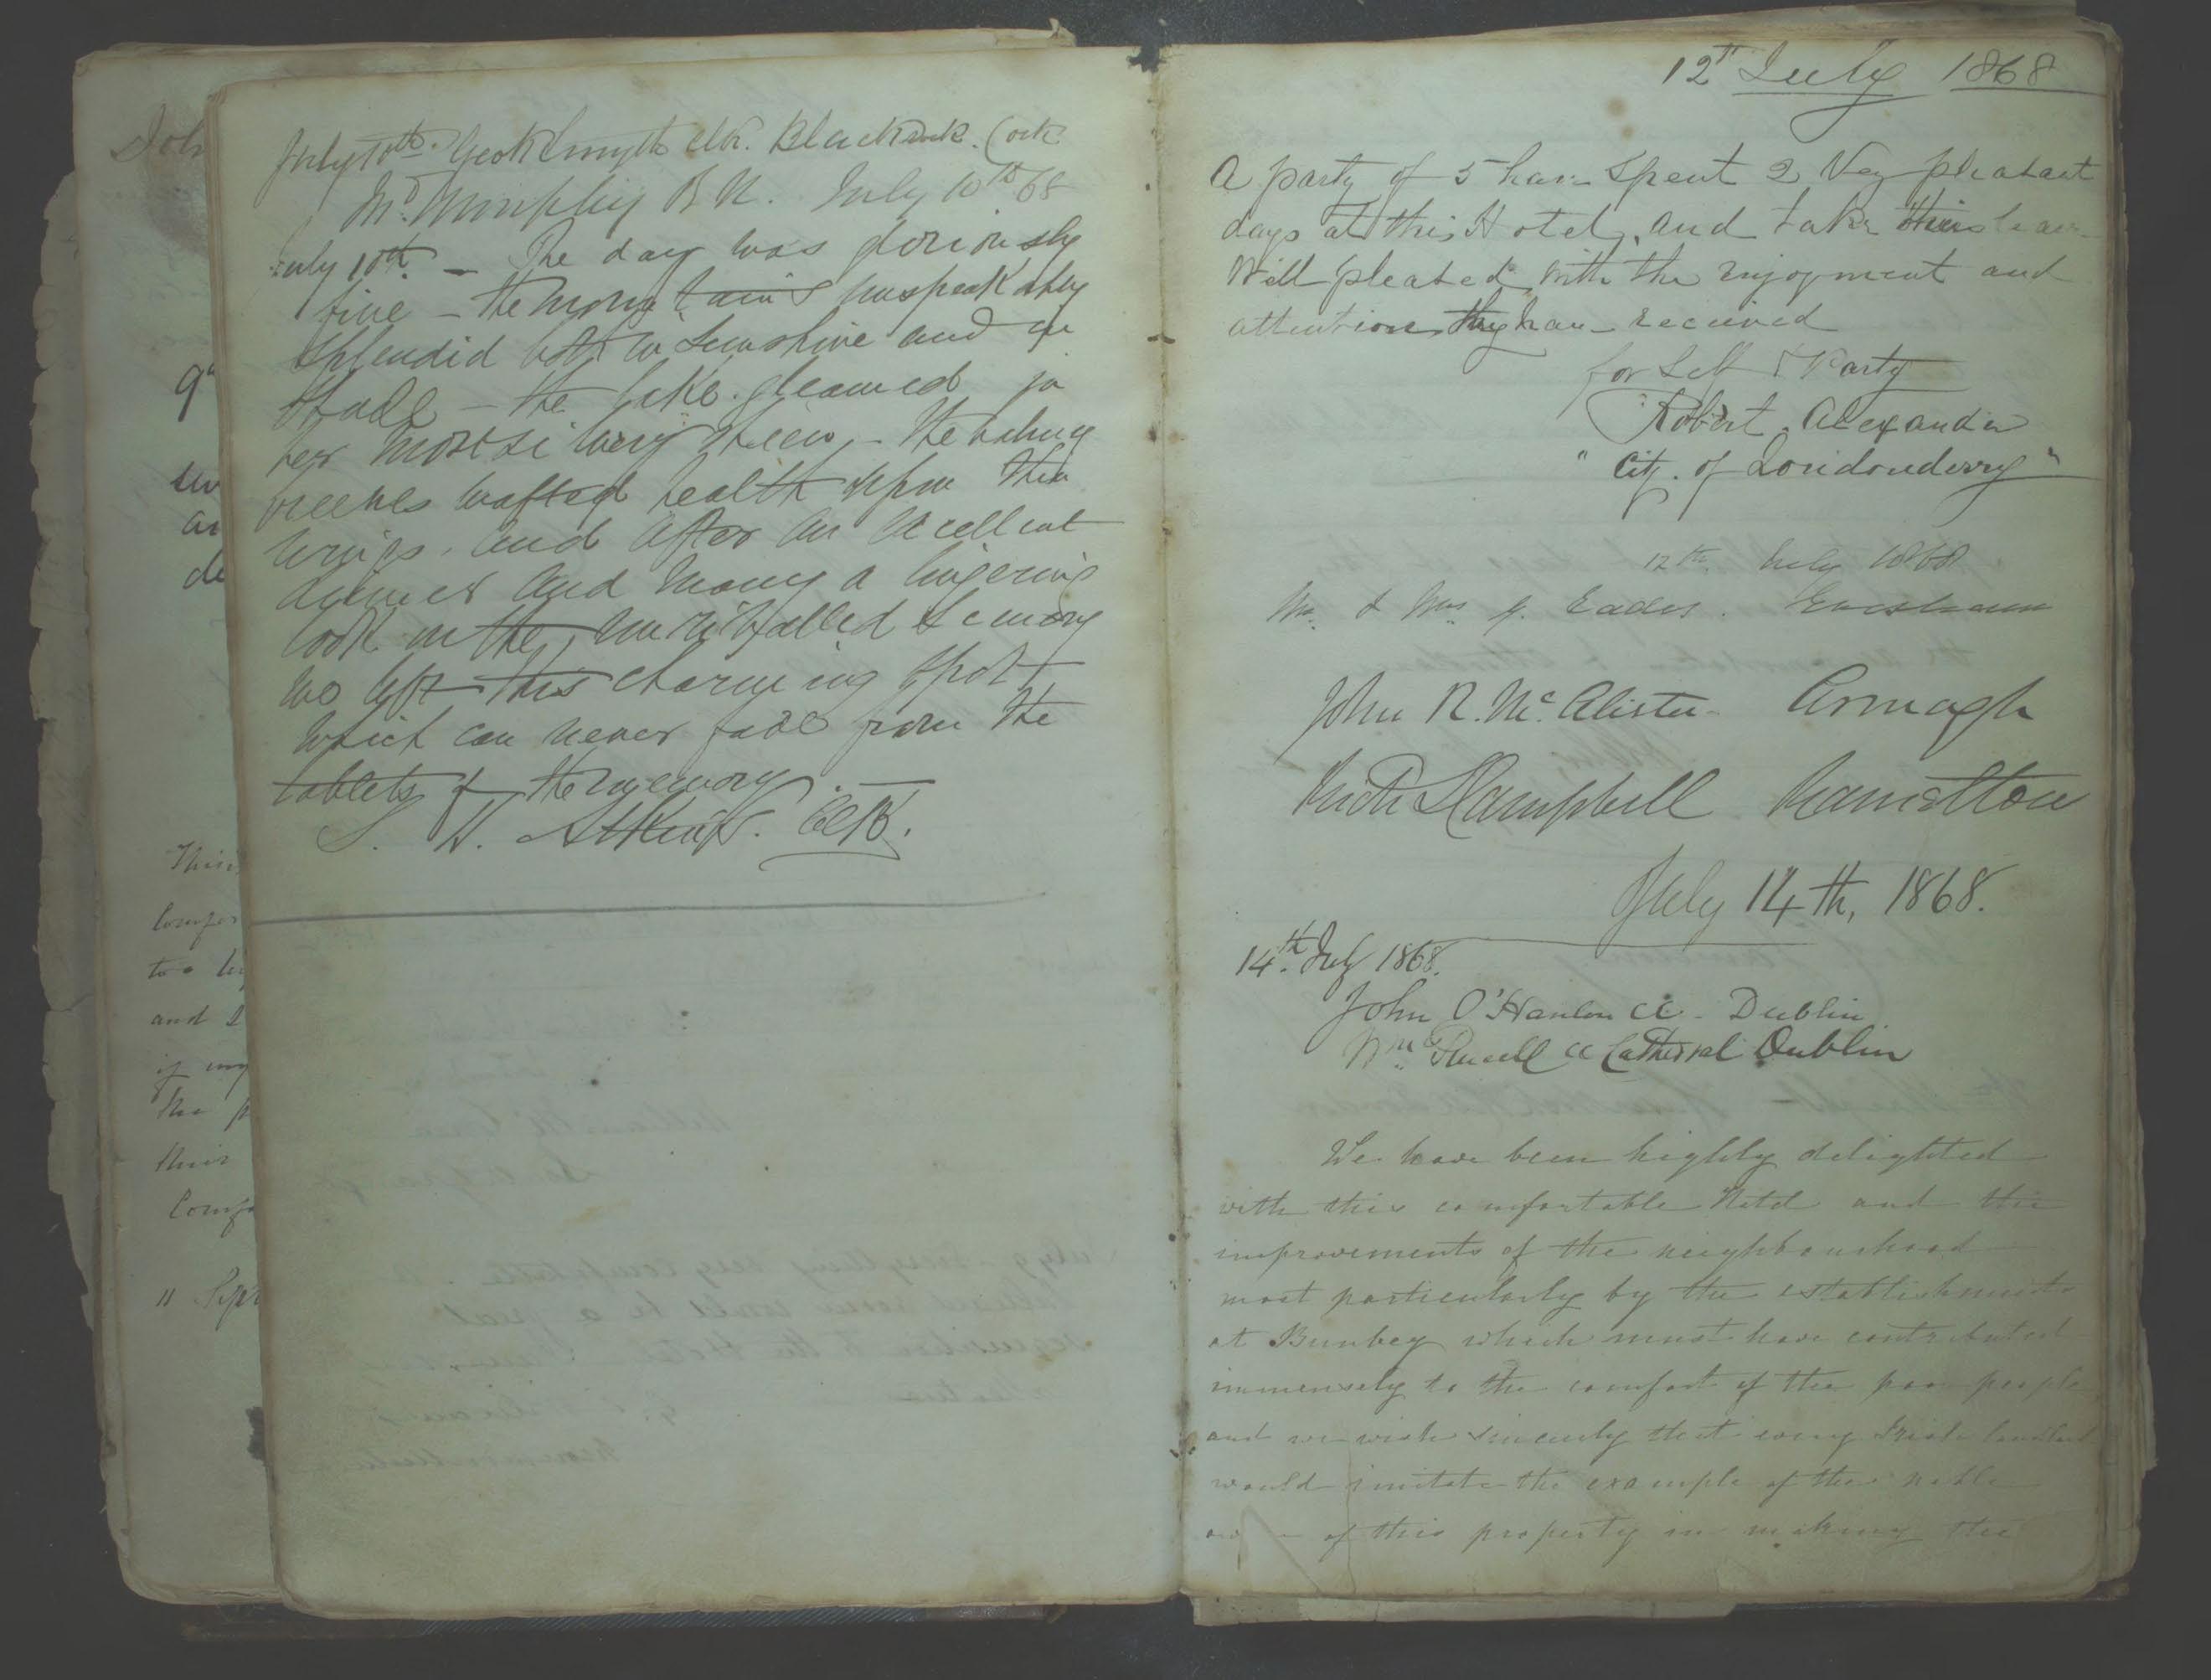 July 10th Geo K Smyth Clk. Blackrock. Cork
Murphy R.N. July 10th 68
July 10th. — The day was gloriously
fine — the mountains unspeakably
splendid both in sunshine and in
shade — the lake gleamed in
her most silvery sheen, — the balmy
breezes wafted health upon their
wings, and after an excellent
dinner and many a lingering
look on the unrivalled scenery
we left this charming spot
which can never fade from the
tablets of the memory. —
S. W. Atkins. Clk.
12th July 1868
A party of 5 have spent 2 very pleasant
days at this Hotel, and take their leave
Well pleased with the enjoyment and
attention they have received
for Self & Party
Robert Alexander
"City of Londonderry"
12th July 1868
Mr. & Mrs. J. Eades. Evesham
John R. McAlister Armagh
Campbell Hamilton
July 14th, 1868.
14th July 1868.
John O'Hanlon CC - Dublin
Wm Purcell CC Cathedral Dublin
We have been highly delighted
with this comfortable Hotel and the
improvements of the neighbourhood
most particularly by the establishments
at Bunbeg which must have contributed
immensely to the comfort of the poor people
and we wish sincerely that every Irish landlord
would imitate the example of the noble
of this property in making the
Joh
9
au
de
This
Compo
to a
and 2
if my
the p
this
Comfo
11 Sept